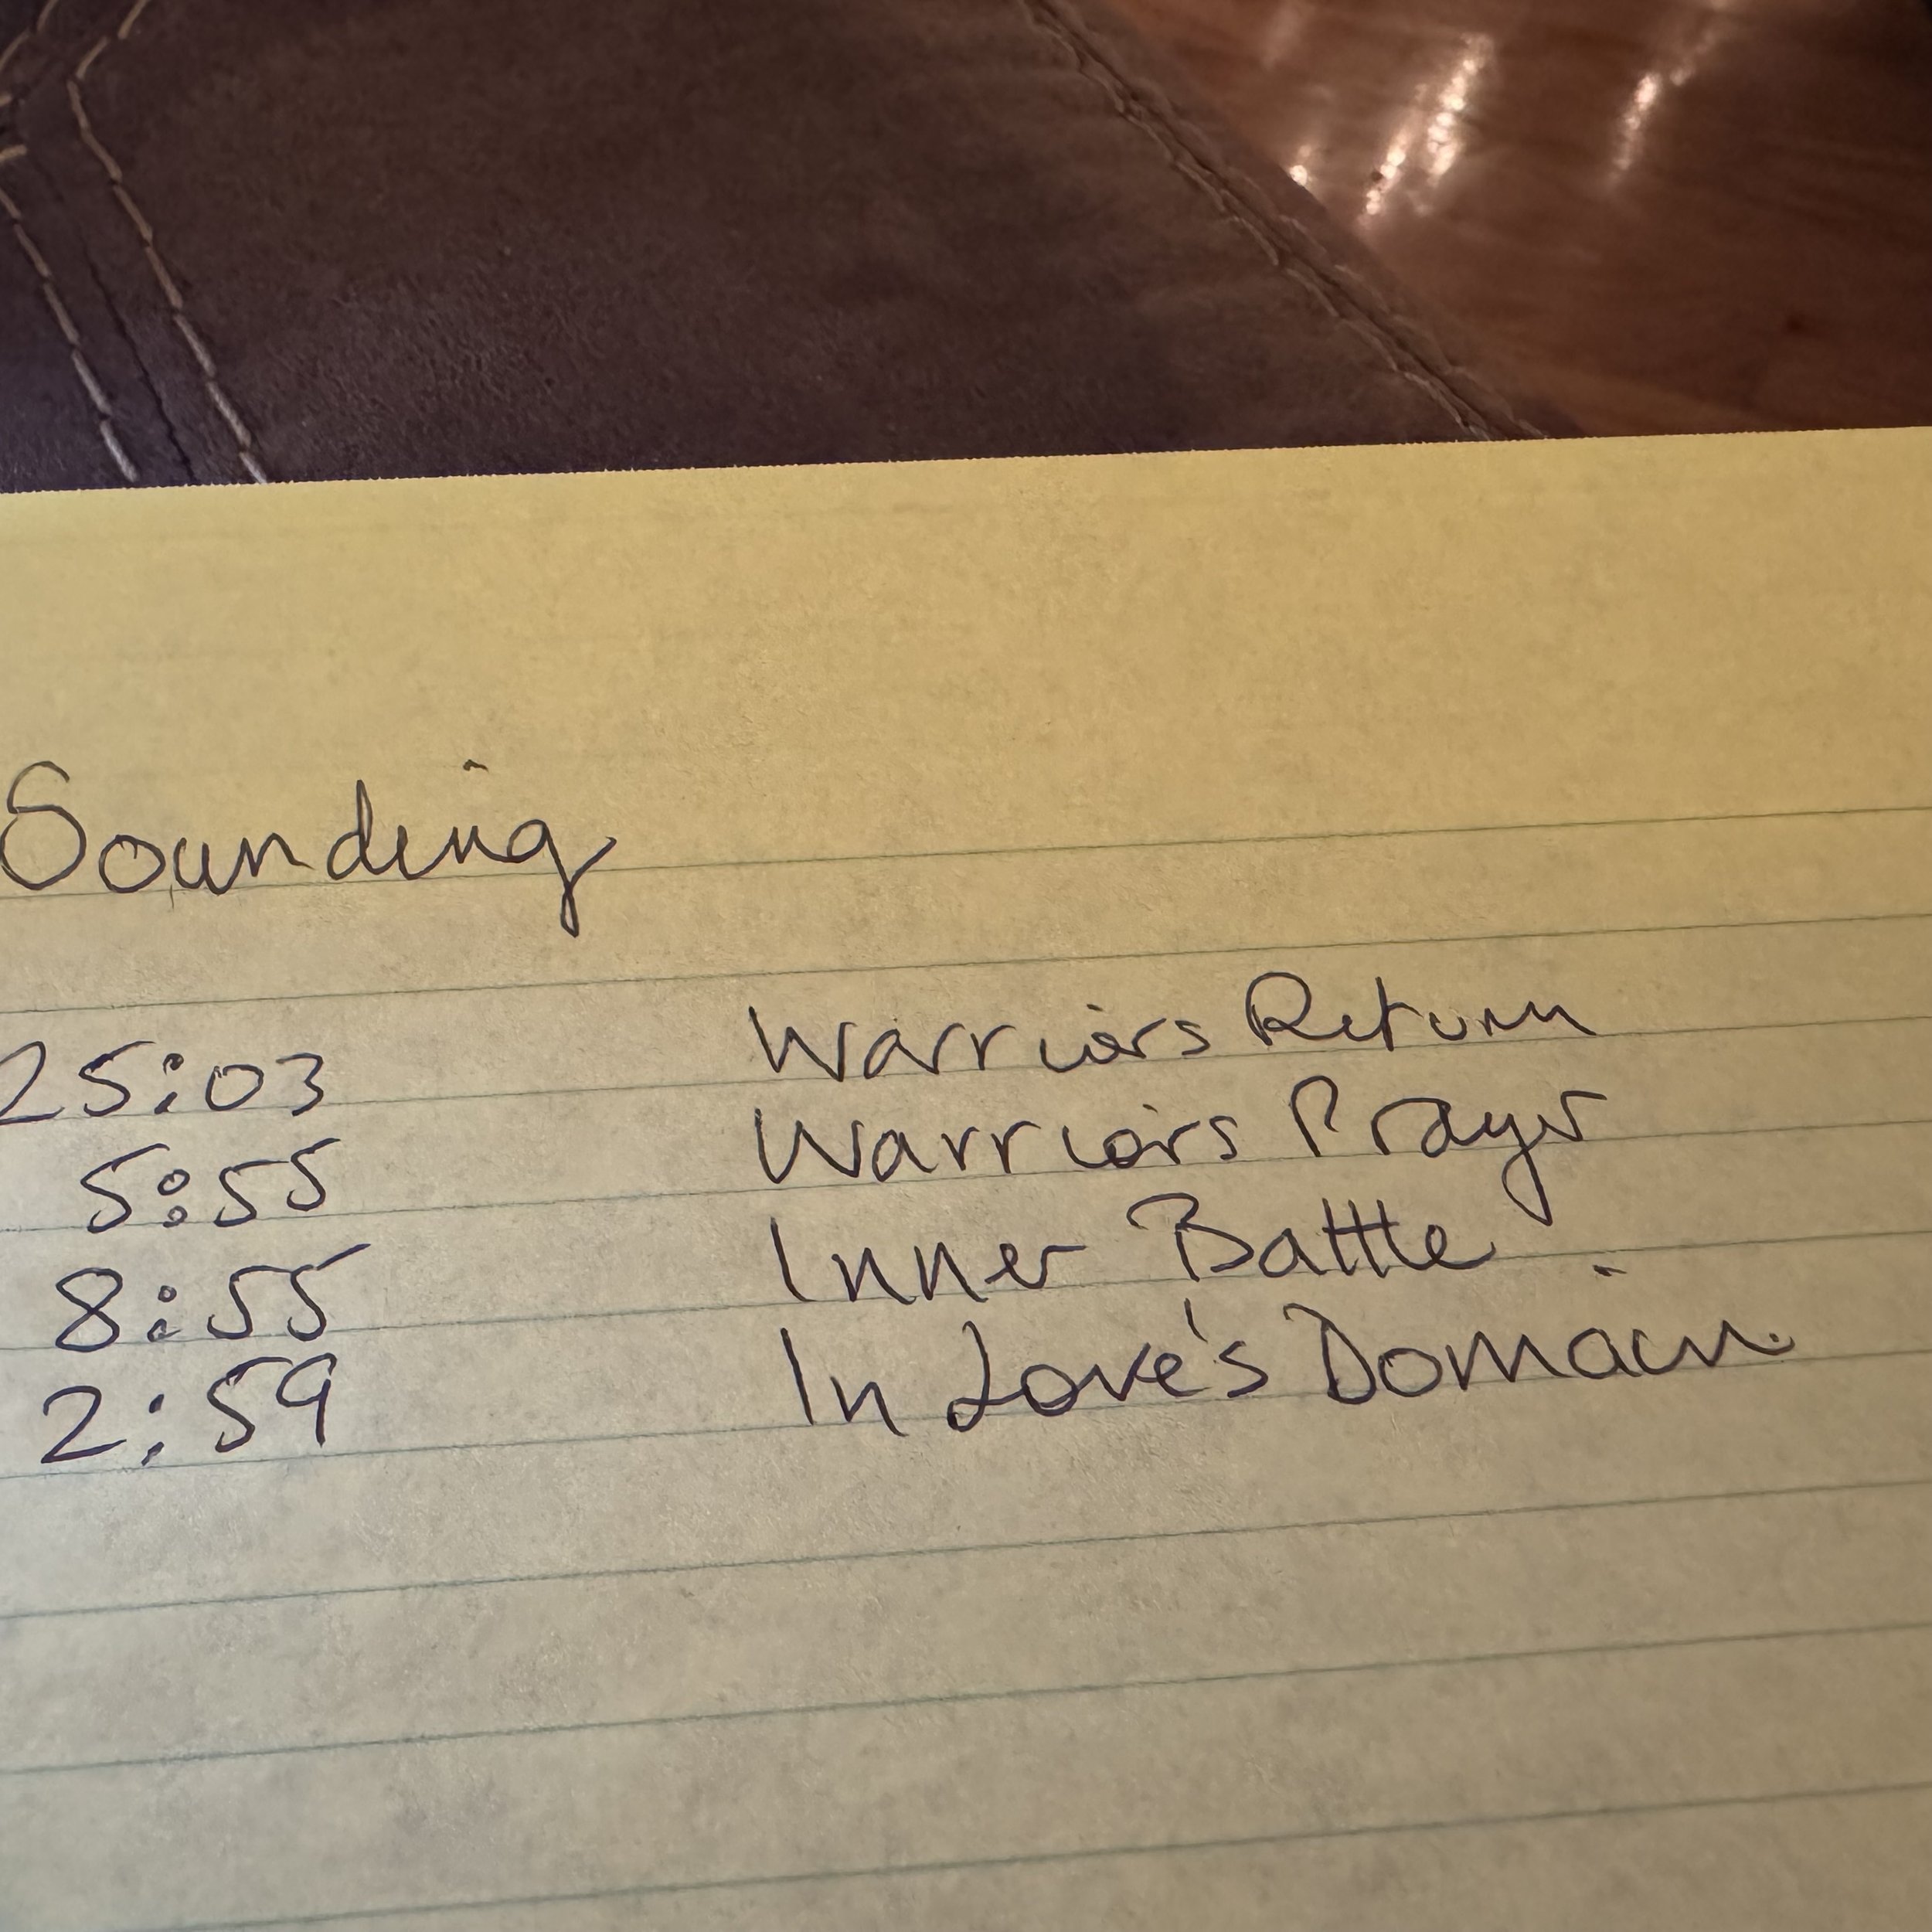 Sounding
25:03 Warriors Return
5:55 Warriors Prayer
8:55 Inner Battle
2:59 In Love's Domain.